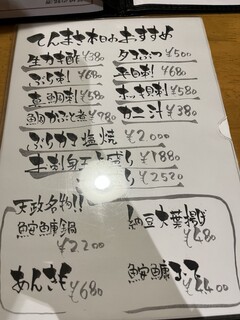 てんまさ本日のおすすめ
生カキ酢 ¥380
タコぶつ ¥500
ぶり刺 ¥680
平目刺 ¥680
真鯛刺 ¥580
ホッキ刺 ¥580
鯛かぶと煮 ¥980
カニ汁 ¥380
ぶりカマ塩焼 ¥2000
お刺身五点盛り ¥1880
¥2520
天政名物!!
鮟鱇鍋
¥2200
納豆大葉揚げ
¥480
あんきも ¥680
鮟鱇
¥4400